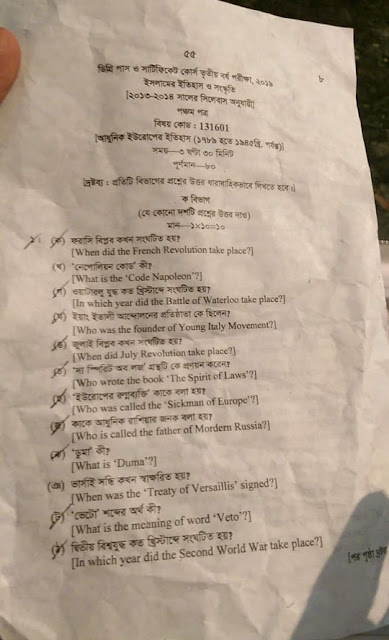 ৫৫
৮
ডিগ্রি পাস ও সার্টিফিকেট কোর্স তৃতীয় বর্ষ পরীক্ষা, ২০১৯
ইসলামের ইতিহাস ও সংস্কৃতি
[২০১৩-২০১৪ সালের সিলেবাস অনুযায়ী]
পঞ্চম পত্র
বিষয় কোড : 131601
[আধুনিক ইউরোপের ইতিহাস (১৭৮৯ হতে ১৯৪৫খ্রি. পর্যন্ত)]
সময়—৩ ঘণ্টা ৩০ মিনিট
পূর্ণমান—৮০
[দ্রষ্টব্য : প্রতিটি বিভাগের প্রশ্নের উত্তর ধারাবাহিকভাবে লিখতে হবে।]
ক বিভাগ
(যে কোনো দশটি প্রশ্নের উত্তর দাও)
মান—১×১০=১০
১। (ক) ফরাসি বিপ্লব কখন সংঘটিত হয়?
[When did the French Revolution take place?]
(খ) 'নেপোলিয়ন কোড' কী?
[What is the 'Code Napoleon'?]
(গ) ওয়াটারলু যুদ্ধ কত খ্রিস্টাব্দে সংঘটিত হয়?
[In which year did the Battle of Waterloo take place?]
(ঘ) ইয়াং ইতালী আন্দোলনের প্রতিষ্ঠাতা কে ছিলেন?
[Who was the founder of Young Italy Movement?]
(ঙ) জুলাই বিপ্লব কখন সংঘটিত হয়?
[When did July Revolution take place?]
(চ) 'দ্য স্পিরিট অব লজ' গ্রন্থটি কে প্রণয়ন করেন?
[Who wrote the book 'The Spirit of Laws'?]
(ছ) 'ইউরোপের রুগ্নব্যক্তি' কাকে বলা হয়?
[Who was called the 'Sickman of Europe'?]
(জ) কাকে আধুনিক রাশিয়ার জনক বলা হয়?
[Who is called the father of Mordern Russia?]
(ঝ) 'ডুমা' কী?
[What is 'Duma'?]
(ঞ) ভার্সাই সন্ধি কখন স্বাক্ষরিত হয়?
[When was the 'Treaty of Versaillis' signed?]
(ট) 'ভেটো' শব্দের অর্থ কী?
[What is the meaning of word 'Veto'?]
(ঠ) দ্বিতীয় বিশ্বযুদ্ধ কত খ্রিস্টাব্দে সংঘটিত হয়?
[In which year did the Second World War take place?]
[পর পৃষ্ঠা দ্রষ্টব্য